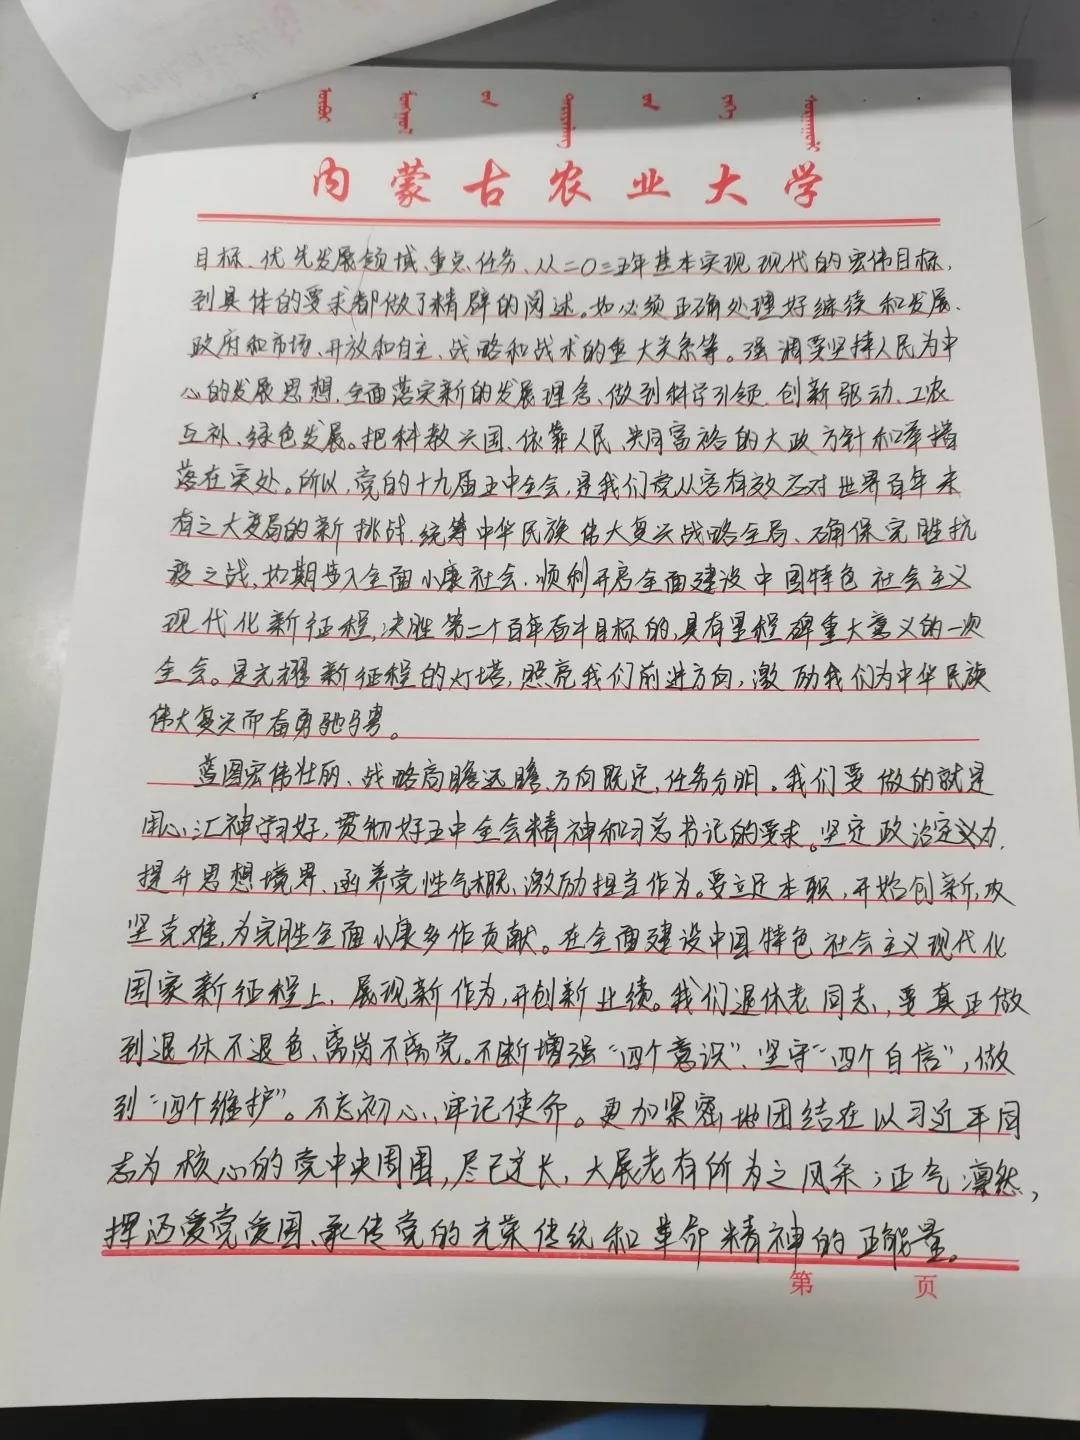 内蒙古农业大学
目标、优先发展领域、重点任务、从二〇三五年基本实现现代的宏伟目标,
到具体的要求都做了精辟的阐述。如必须正确处理好继续和发展、
政府和市场、开放和自主、战略和战术的重大关系等。强调要坚持人民为中
心的发展思想,全面落实新的发展理念、做到科学引领、创新驱动、工农
互补、绿色发展。把科教兴国、依靠人民、共同富裕的大政方针和举措
落在实处。所以,党的十九届五中全会,是我们党从容有效应对世界百年未
有之大变局的新挑战,统筹中华民族伟大复兴战略全局、确保完胜抗
疫之战,如期步入全面小康社会,顺利开启全面建设中国特色社会主义
现代化新征程,决胜第二个百年奋斗目标的,具有里程碑重大意义的一次
全会。是光耀新征程的灯塔,照亮我们前进方向,激励我们为中华民族
伟大复兴而奋勇驰骋。
蓝图宏伟壮丽、战略高瞻远瞻、方向既定,任务分明。我们要做的就是
用心汇神学习好,贯彻好五中全会精神和习总书记的要求。坚定政治定义为,
提升思想境界、涵养党性气概、激励担当作为。要立足本职,开始创新,攻
坚克难,为完胜全面小康多作贡献。在全面建设中国特色社会主义现代化
国家新征程上,展现新作为,开创新业绩。我们退休老同志,要真正做
到退休不退色、离岗不离党。不断增强“四个意识”、坚守“四个自信”,做
到“四个维护”。不忘初心、牢记使命。更加紧密地团结在以习近平同
志为核心的党中央周围,尽己之长,大展老有所为之风采;正气凛然,
挥洒爱党爱国、承传党的光荣传统和革命精神的正能量。
第 页